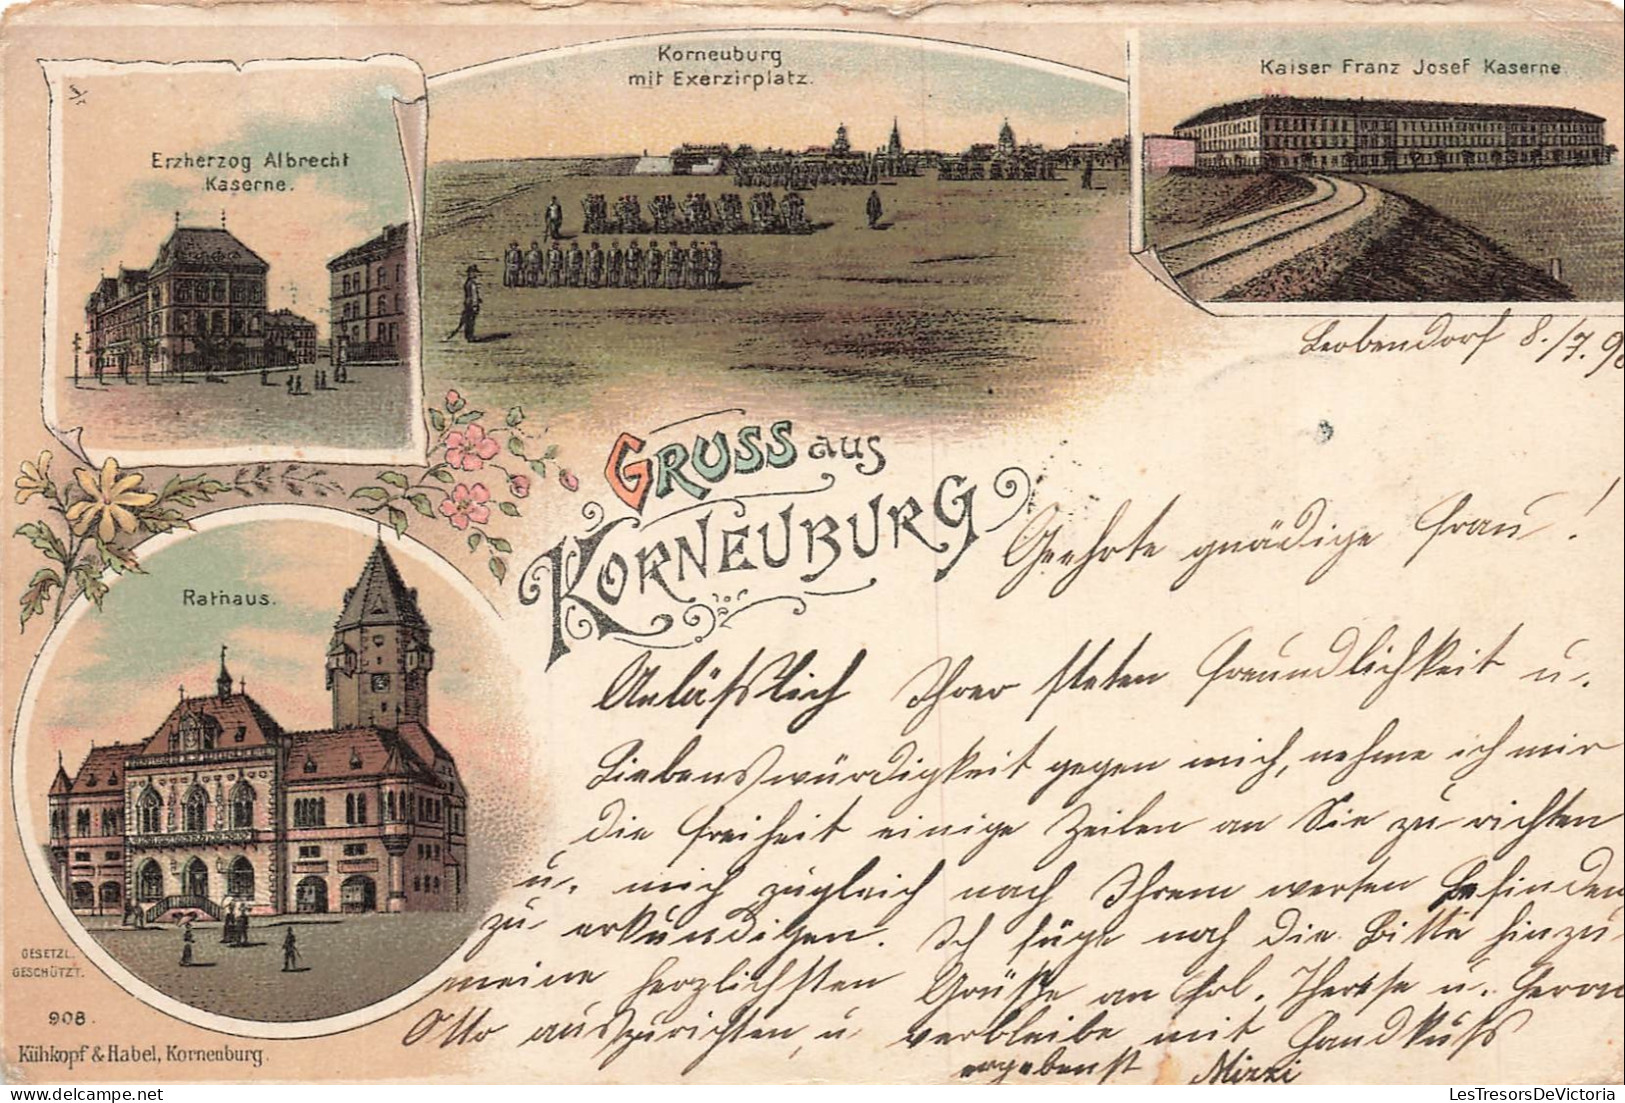 Korneuburg
mit Exerzirplatz.
Kaiser Franz Josef Kaserne
Erzherzog Albrecht
Kaserne.
Leobendorf 8./7. 98
GRUSS aus
KORNEUBURG
Geehrte gnädige Frau!
Rathaus.
Anläßlich Ihrer steten Freundlichkeit u.
Liebenswürdigkeit gegen mich, nehme ich mir
die Freiheit einige Zeilen an Sie zu richten
u. mich zugleich nach Ihrem werten Befinden
zu erkundigen. Ich füge noch die Bitte hinzu
meine herzlichsten Grüße an Frl. Therese u. Herrn
Otto auszurichten, u. verbleibe mit Handkuß
ergebenst Mizzi
GESETZL.
GESCHÜTZT.
908.
Kühkopf & Habel, Korneuburg.
LesTresorsDeVictoria